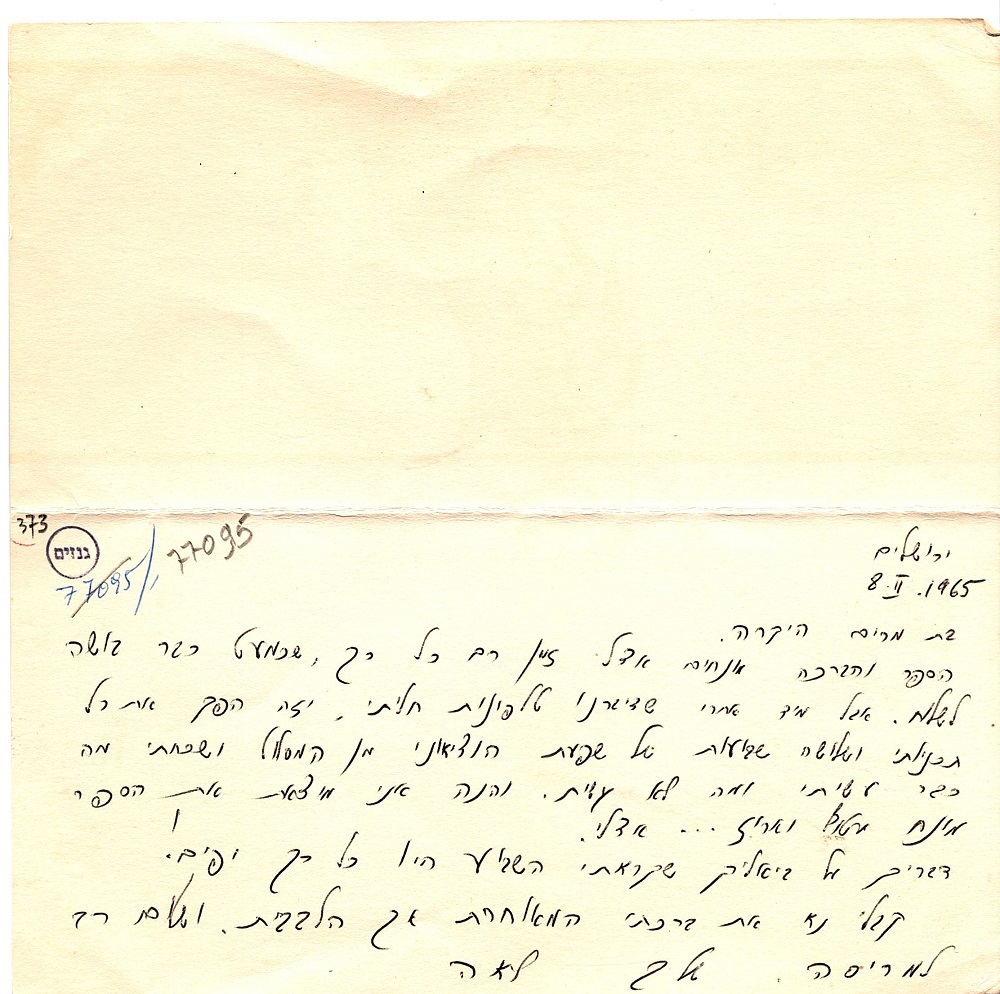 373
גנזים
77095/
77095
ירושלים
8.II.1965
בת מרים היקרה.
הספר והברכה מונחים אצלי זמן רב כל כך, שכמעט כבר בושה
לשלוח. אבל מיד אחרי שדיברנו טלפונית חליתי, וזה הפך את כל
תכניותי ושלושה שבועות של שפעת הוציאוני מן המסלול ושכחתי מה
כבר עשיתי ומה לא עשיתי. והנה אני מוצאת את הספר
מונח ואריז... אצלי.
דבריך על ביאליק שקראתי השבוע היו כל כך יפים.
קבלי נא את ברכתי המאוחרת אך הלבבית. ושלום רב
למריסה. שלך לאה